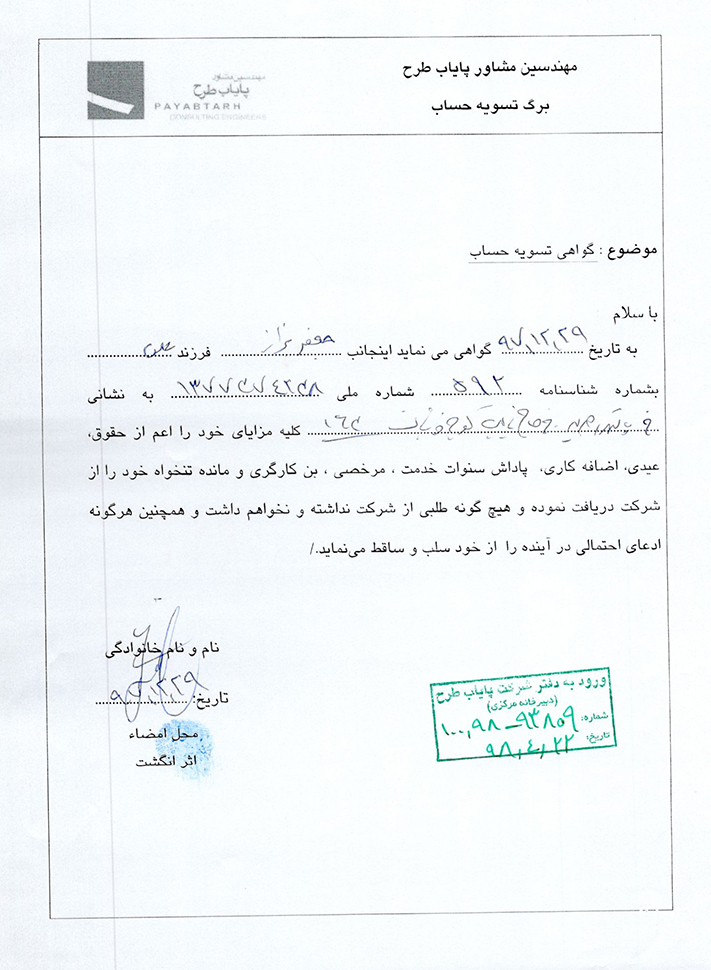 مهندسین مشاور پایاب طرح
برگ تسویه حساب
مهندسین مشاور
پایاب طرح
PAYABTARH
CONSULTING ENGINEERS
موضوع : گواهی تسویه حساب
با سلام
به تاریخ ۹۷,۱۲,۲۹ گواهی می نماید اینجانب جعفر فرزند
بشماره شناسنامه ۵۹۲ شماره ملی به نشانی
کلیه مزایای خود را اعم از حقوق،
عیدی، اضافه کاری، پاداش سنوات خدمت ، مرخصی ، بن کارگری و مانده تنخواه خود را از
شرکت دریافت نموده و هیچ گونه طلبی از شرکت نداشته و نخواهم داشت و همچنین هرگونه
ادعای احتمالی در آینده را از خود سلب و ساقط می‌نماید./
نام و نام خانوادگی
تاریخ:
محل امضاء
اثر انگشت
ورود به دفتر شرکت پایاب طرح
(دبیرخانه مرکزی)
شماره: ۱۰۰,۹۸-۹۳۸۵۹
تاریخ: ۹۸,۴,۲۲